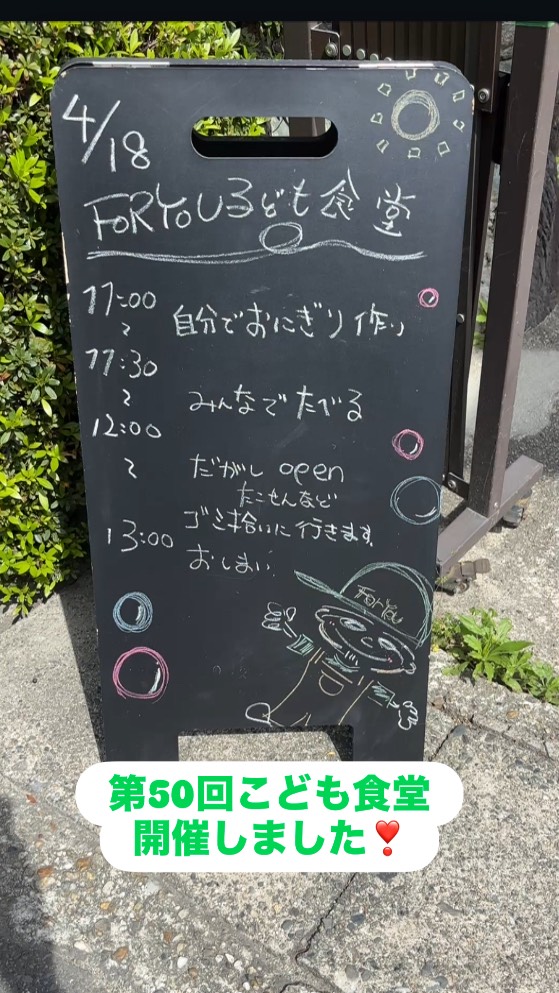 4/18
FORYOUこども食堂
11:00
〜
自分でおにぎり作り
11:30
〜
みんなでたべる
12:00
〜
だがし open
たこせんなど
ゴミ拾いに行きます
13:00
おしまい
ForYou
第50回こども食堂
開催しました❣️